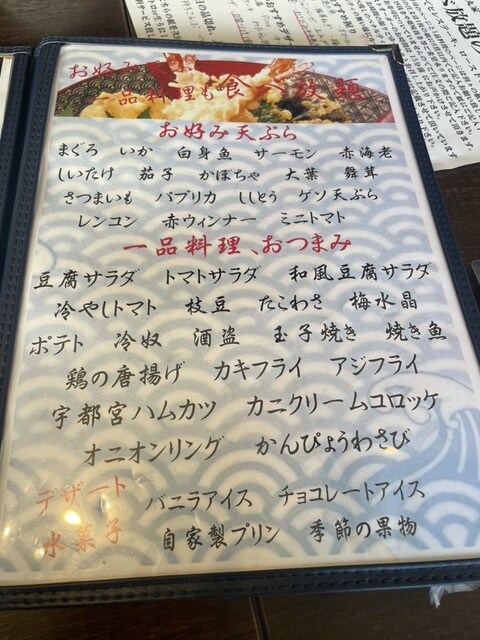 お好み
一品料理も食べ放題
お好み天ぷら
まぐろ いか 白身魚 サーモン 赤海老
しいたけ 茄子 かぼちゃ 大葉 舞茸
さつまいも パプリカ ししとう ゲソ天ぷら
レンコン 赤ウィンナー ミニトマト
一品料理、おつまみ
豆腐サラダ トマトサラダ 和風豆腐サラダ
冷やしトマト 枝豆 たこわさ 梅水晶
ポテト 冷奴 酒盗 玉子焼き 焼き魚
鶏の唐揚げ カキフライ アジフライ
宇都宮ハムカツ カニクリームコロッケ
オニオンリング かんぴょうわさび
デザート バニラアイス チョコレートアイス
水菓子 自家製プリン 季節の果物